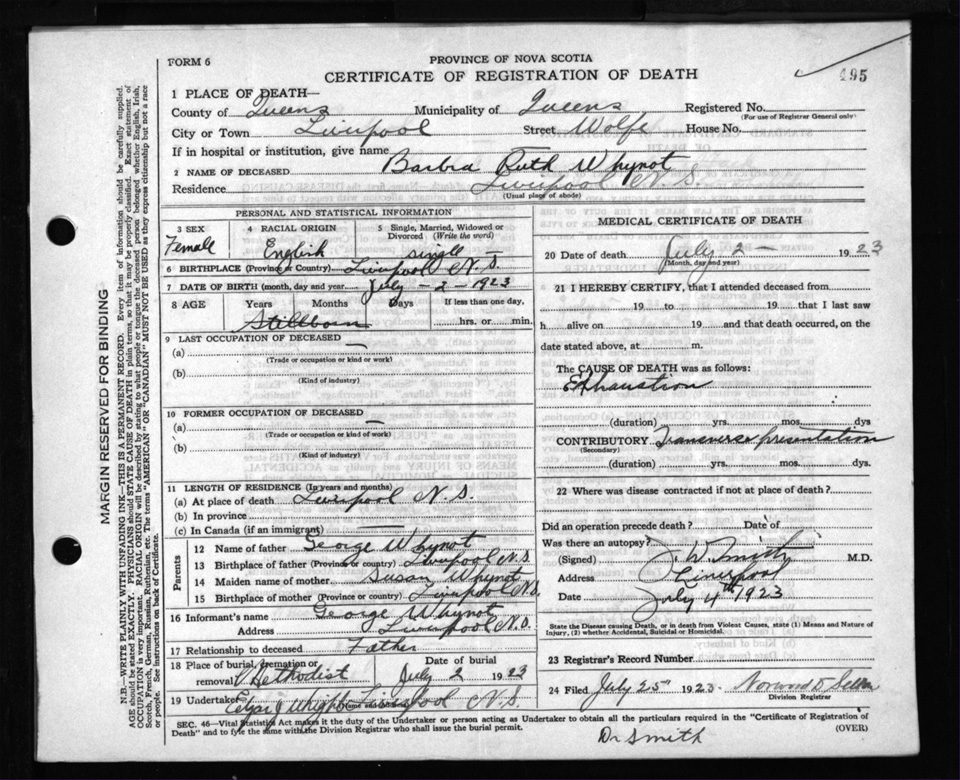 FORM 6
PROVINCE OF NOVA SCOTIA
CERTIFICATE OF REGISTRATION OF DEATH
495
1 PLACE OF DEATH—
County of Queens Municipality of Queens Registered No.
(For use of Registrar General only)
City or Town Liverpool Street Wolfe House No.
If in hospital or institution, give name
2 NAME OF DECEASED Barbra Ruth Whynot
Residence Liverpool N.S.
(Usual place of abode)
PERSONAL AND STATISTICAL INFORMATION
3 SEX 4 RACIAL ORIGIN 5 Single, Married, Widowed or Divorced (Write the word)
Female English single
6 BIRTHPLACE (Province or Country) Liverpool N.S.
7 DATE OF BIRTH (month, day and year) July - 2 - 1923
8 AGE Years Months Days If less than one day,
Stillborn hrs. or min.
9 LAST OCCUPATION OF DECEASED —
(a)
(Trade or occupation or kind or work)
(b)
(Kind of industry)
10 FORMER OCCUPATION OF DECEASED —
(a)
(Trade or occupation or kind of work)
(b)
(Kind of industry)
11 LENGTH OF RESIDENCE (In years and months)
(a) At place of death Liverpool N.S.
(b) In province
(c) In Canada (if an immigrant) —
Parents
12 Name of father George Whynot
13 Birthplace of father (Province or country) Liverpool N.S.
14 Maiden name of mother Susan Whynot
15 Birthplace of mother (Province or Country) Liverpool N.S.
16 Informant's name George Whynot
Address Liverpool N.S.
17 Relationship to deceased Father
18 Place of burial, cremation or removal Date of burial
Methodist July 2 1923
19 Undertaker Liverpool N.S.
(Name and address)
MEDICAL CERTIFICATE OF DEATH
20 Date of death July 2 — 1923
(Month, day and year)
21 I HEREBY CERTIFY, that I attended deceased from
19 to 19 that I last saw
h alive on 19 and that death occurred, on the
date stated above, at m.
The CAUSE OF DEATH was as follows:
Exhaustion
(duration) yrs. mos. dys
CONTRIBUTORY Transverse presentation
(Secondary)
(duration) yrs. mos. dys.
22 Where was disease contracted if not at place of death?
Did an operation precede death? Date of
Was there an autopsy?
(Signed) J. W. Smith M.D.
Address Liverpool
Date July 4th 1923
State the Disease causing Death, or in death from Violent Causes, state (1) Means and Nature of Injury, (2) whether Accidental, Suicidal or Homicidal.
23 Registrar's Record Number
24 Filed July 25th 1923
Division Registrar
SEC. 46—Vital Statistics Act makes it the duty of the Undertaker or person acting as Undertaker to obtain all the particulars required in the "Certificate of Registration of
Death" and to fyle the same with the Division Registrar who shall issue the burial permit. (OVER)
Dr Smith
MARGIN RESERVED FOR BINDING
N.B.—WRITE PLAINLY WITH UNFADING INK—THIS IS A PERMANENT RECORD. Every item of information should be carefully supplied.
AGE should be stated EXACTLY. PHYSICIANS should STATE CAUSE OF DEATH in plain terms, so that it may be properly classified. Exact statement of
OCCUPATION is very important. RACIAL ORIGIN will be described by stating to what people or tongue the deceased person belonged whether English, Irish,
Scotch, French, German, Russian, Ruthenian, etc. The terms "AMERICAN" OR "CANADIAN" MUST NOT BE USED as they express citizenship but not a race
or people. See instructions on back of Certificate.